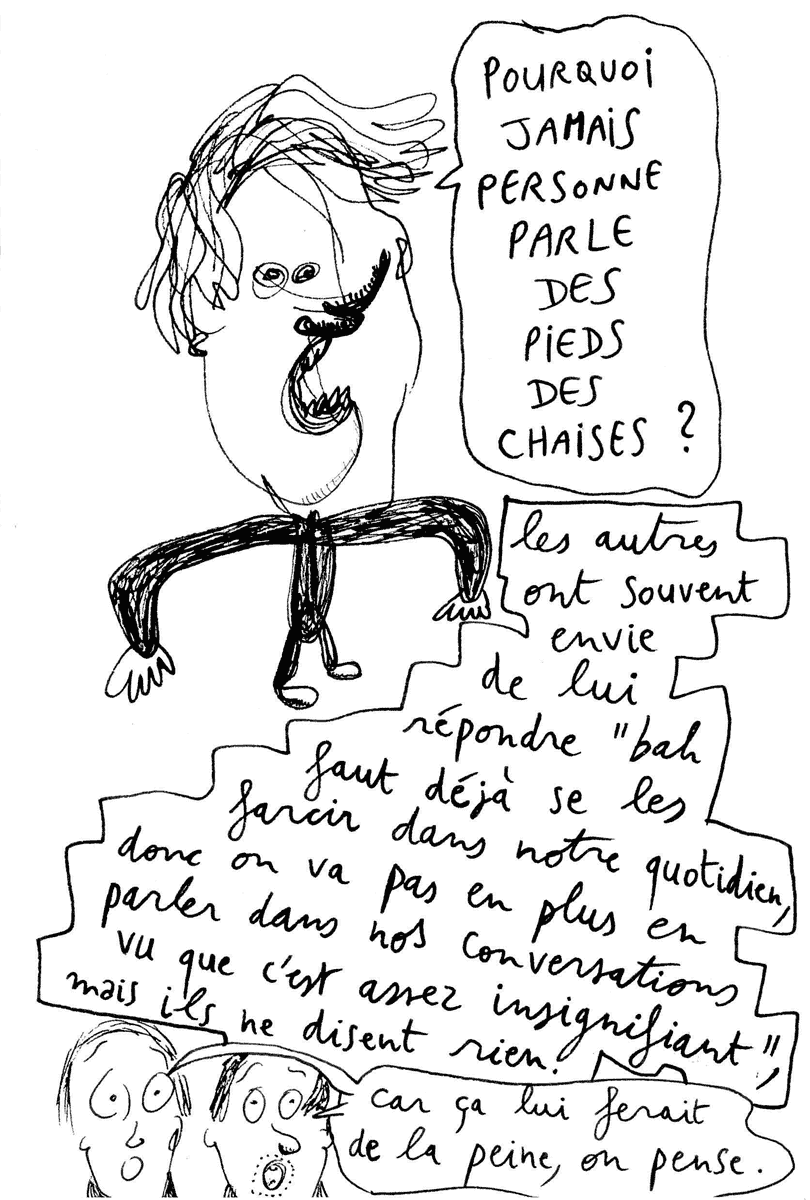 POURQUOI
JAMAIS
PERSONNE
PARLE
DES
PIEDS
DES
CHAISES ?
les autres
ont souvent
envie
de lui
répondre "bah
faut déjà se les
farcir dans notre quotidien,
donc on va pas en plus en
parler dans nos conversations
vu que c'est assez insignifiant",
mais ils ne disent rien.
car ça lui ferait
de la peine, on pense.